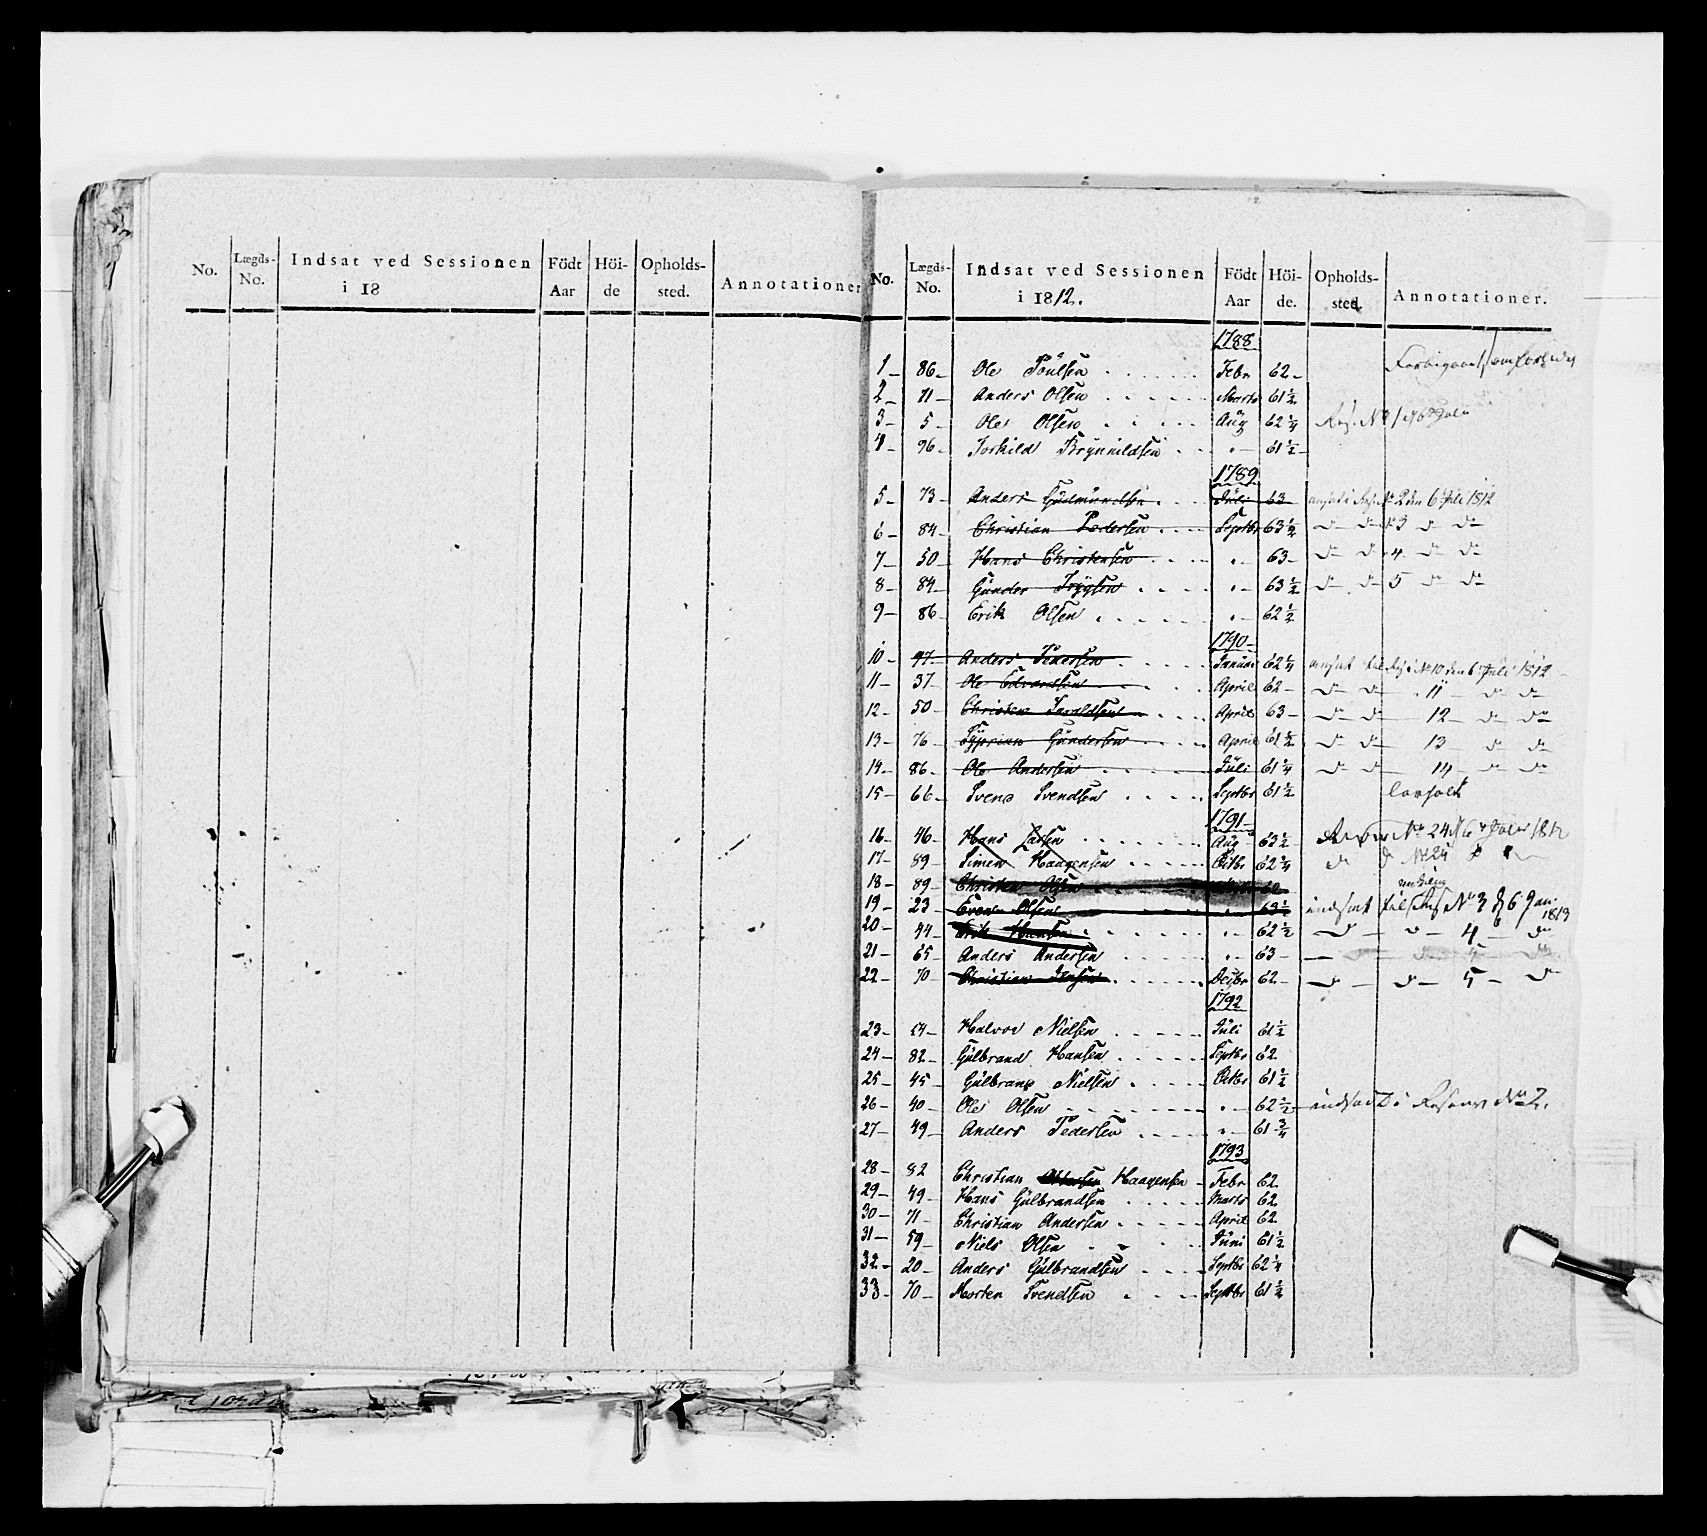 No. Lægds-No. Indsat ved Sessionen i 18 Födt Aar Höi-de Opholds-sted. Annotationer
No. Lægds-No. Indsat ved Sessionen i 1812. Födt Aar Höi-de. Opholds-sted. Annotationer.
1788
1 86 Ole Povlsen Febr 62 Forbigaaet
2 71 Anders Olsen Marts 61 1/2
3 5 Ole Olsen Aug 62 1/4
4 96 Torkild Brynnildsen 61 1/2
1789
5 73 Anders Gudmundsen Juli 63 2 den 6 Juli 1812
6 84 Christian Pedersen Septbr 63 1/2 do do 3 do do
7 50 Hans Christensen 63 do do 4 do do
8 84 Gunder Trygsen 63 1/2 do do 5 do do
9 86 Erik Olsen 62 1/2
1790
10 97 Anders Pedersen Januar 62 1/4 No 10 den 6 Juli 1812
11 37 Ole Edvardsen April 62 do do 11 do do
12 50 Christen Taraldsen April 63 do do 12 do do
13 76 Syprian Gundersen April 61 do do 13 do do
14 86 Ole Andersen Juli 61 1/4 do do 14 do do
15 66 Svend Svendsen Septbr 61 1/2
1791
16 46 Hans Larsen Aug 63 1/2 No 24 6 1812
17 89 Simen Haagensen Octbr 62 3/4 do do
18 89 Christen Olsen 62
19 23 Even Olsen 63 1/2 indsat No 3 d 6 Jan 1813
20 44 Erik Hansen 62 1/2 do do 4 do
21 65 Anders Andersen 63
22 70 Christian Jensen Decbr 62 do do 5 do
1792
23 54 Halvor Nielsen Juli 61 1/2
24 82 Gulbrand Hansen Septbr 62
25 45 Gulbrand Nielsen Octbr 61 1/2
26 40 Ole Olsen 62 1/2 indsadt i No 2.
27 49 Anders Pedersen 61 3/4
1793
28 82 Christian Haagensen Febr 62
29 49 Hans Gulbrandsen Marts 62
30 71 Christian Andersen April 62
31 59 Niels Olsen Juni 61 1/2
32 20 Anders Gulbrandsen Septbr 62 1/4
33 70 Morten Svendsen Septbr 61 1/2